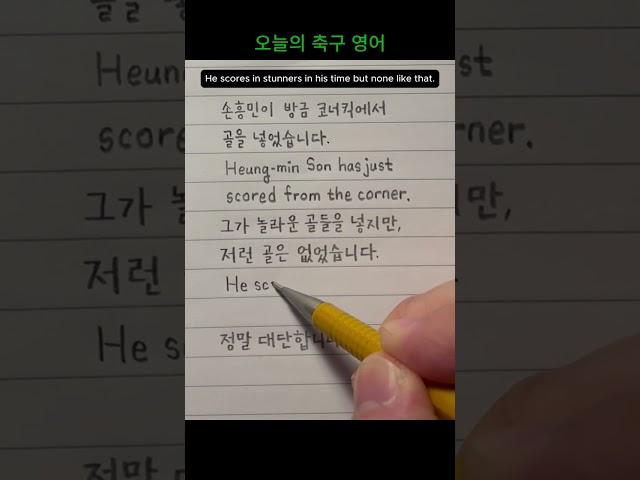 오늘의 축구 영어
He scores in stunners in his time but none like that.
손흥민이 방금 코너킥에서
골을 넣었습니다.
Heung-min Son has just
scored from the corner.
그가 놀라운 골들을 넣지만,
저런 골은 없었습니다.
He sc
정말 대단합니다